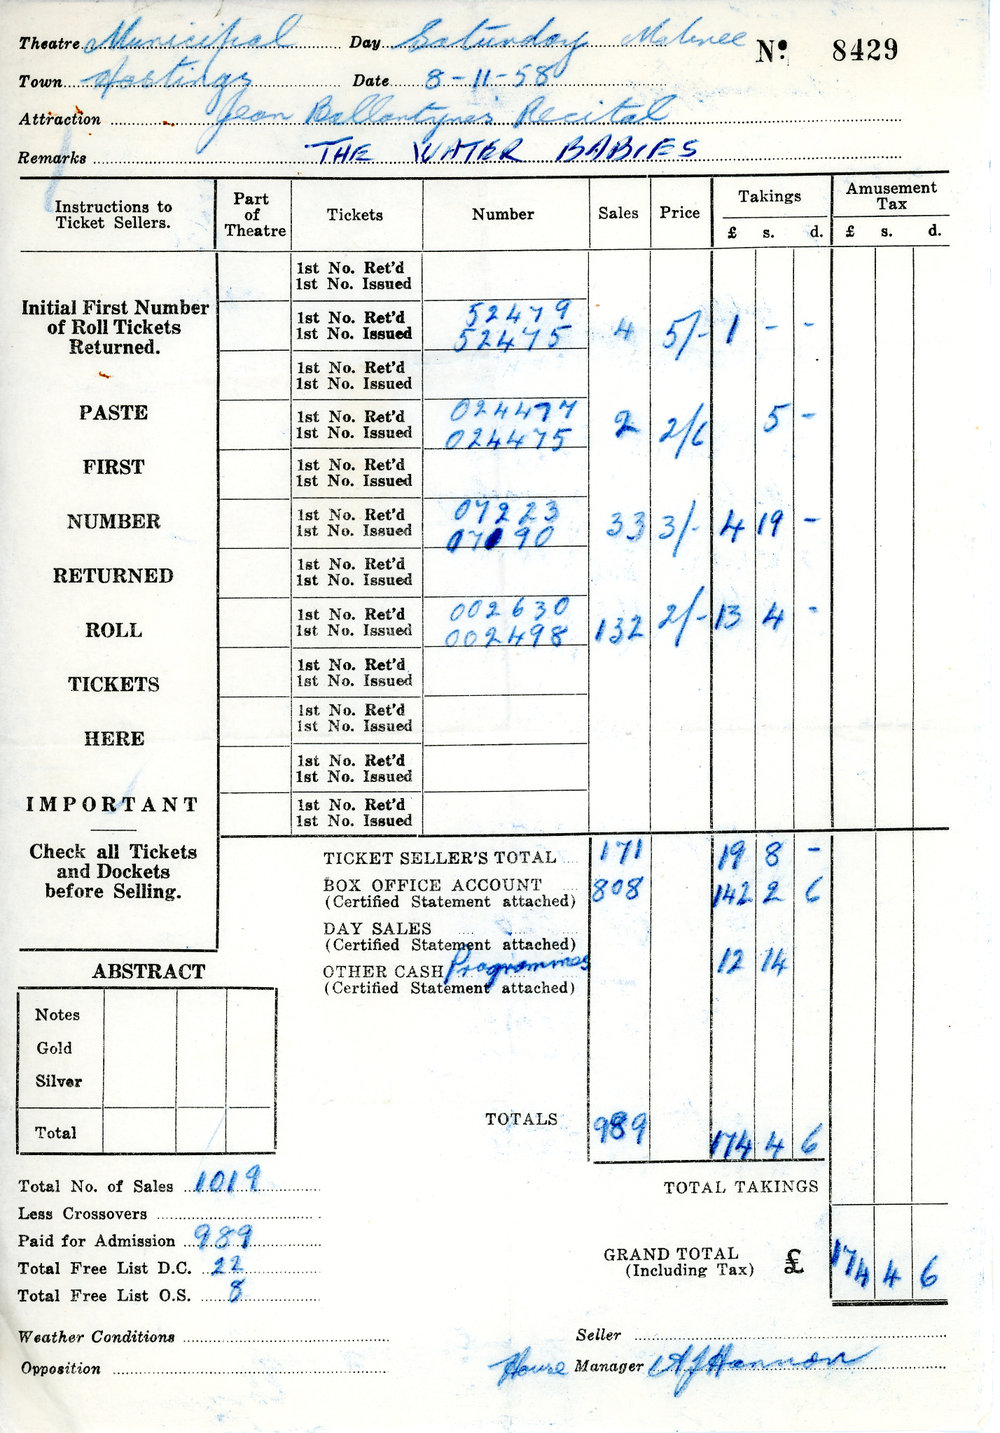 Theatre Municipal Day Saturday Matinee Nº 8429
Town Hastings Date 8-11-58
Attraction Jean Ballantynes Recital
Remarks THE WATER BABIES
Instructions to Ticket Sellers. Part of Theatre Tickets Number Sales Price Takings Amusement Tax
£ s. d. £ s. d.
1st No. Ret'd
1st No. Issued
Initial First Number of Roll Tickets Returned.
1st No. Ret'd 52479
1st No. Issued 52475 4 5/- 1 - -
1st No. Ret'd
1st No. Issued
PASTE
1st No. Ret'd 024477
1st No. Issued 024475 2 2/6 5 -
FIRST
1st No. Ret'd
1st No. Issued
NUMBER
1st No. Ret'd 07223
1st No. Issued 07190 33 3/- 4 19 -
RETURNED
1st No. Ret'd
1st No. Issued
ROLL
1st No. Ret'd 002630
1st No. Issued 002498 132 2/- 13 4 -
TICKETS
1st No. Ret'd
1st No. Issued
HERE
1st No. Ret'd
1st No. Issued
1st No. Ret'd
1st No. Issued
IMPORTANT
1st No. Ret'd
1st No. Issued
Check all Tickets and Dockets before Selling.
TICKET SELLER'S TOTAL 171 19 8 -
BOX OFFICE ACCOUNT 808 142 2 6
(Certified Statement attached)
DAY SALES
(Certified Statement attached)
OTHER CASH Programmes 12 14
(Certified Statement attached)
ABSTRACT
Notes
Gold
Silver
Total
TOTALS 989 174 4 6
Total No. of Sales 1019
TOTAL TAKINGS
Less Crossovers
Paid for Admission 989
GRAND TOTAL (Including Tax) £ 174 4 6
Total Free List D.C. 22
Total Free List O.S. 8
Weather Conditions Seller
Opposition House Manager AJHannon